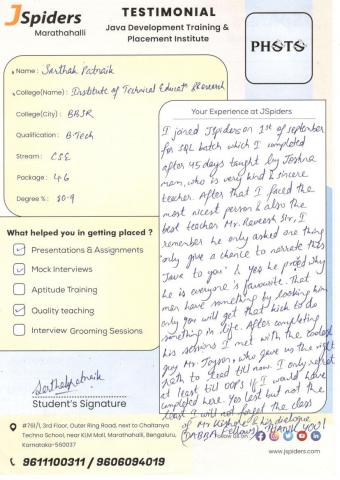 JSpiders
Marathahalli
TESTIMONIAL
Java Development Training &
Placement Institute
PHOTO
Name : Sarthak Patnaik
College(Name) : Institute of Technical Educatn & Research
College(City) : BBSR
Qualification : B.Tech
Stream : CSE
Package : 4.6
Degree % : 80.9
Your Experience at JSpiders
I joined JSpiders on 1st of september
for SQL batch which I completed
after 45 days taught by Joshna
mam, who is very kind & sincere
teacher. After that I faced the
most nicest person & also the
best teacher Mr. Raveesh Sir, I
remember he only asked one thing
only give a chance to narrate this
Java to you. & yes he proved why
he is everyone's favourite. That
man have something by looking him
only you will get that kick to do
something in life. After completing
his sessions I met with the coolest
guy Mr. who gave us the right
path to lead till now. I only
at least till OOPS if I would have
completed here. Yes last but not the
least I will not forget the class
of Mr. Kishore & his dialogue
THANK YOU!
What helped you in getting placed ?
Presentations & Assignments
Mock Interviews
Aptitude Training
Quality teaching
Interview Grooming Sessions
Sarthakpatnaik
Student's Signature
#761/1, 3rd Floor, Outer Ring Road, next to Chaitanya
Techno School, near KLM Mall, Marathahalli, Bengaluru,
Karnataka-560037
Follow us on :
9611100311 / 9606094019
www.jspiders.com